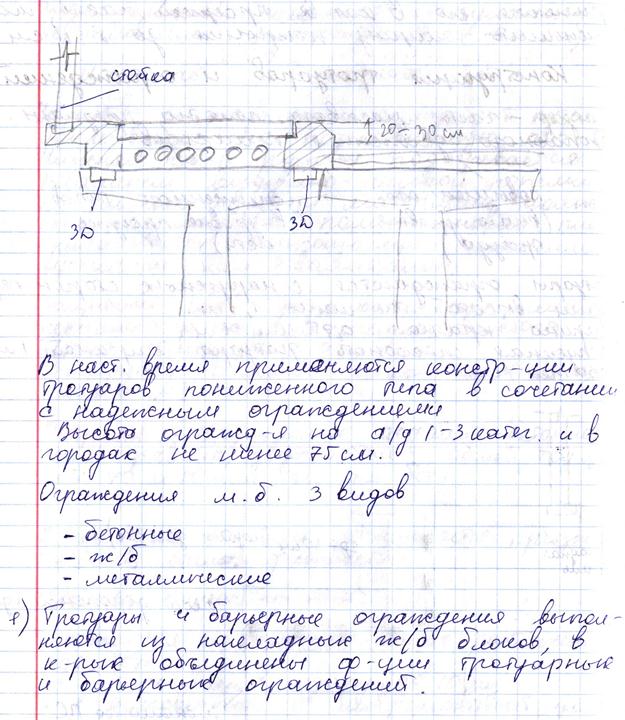 стойка
20-30 см
ЗД
ЗД
В наст. время применяются констр-ции
тротуаров пониженного типа в сочетании
с надежными ограждениями
Высота огражд-я на а/д 1-3 катег. и в
городах не менее 75 см.
Ограждения м.б. 3 видов
- бетонные
- ж/б
- металлические
1) Тротуары и барьерные ограждения выпол-
няются из накладных ж/б блоков, в
к-рых объединены ф-ции тротуарных
и барьерных ограждений.